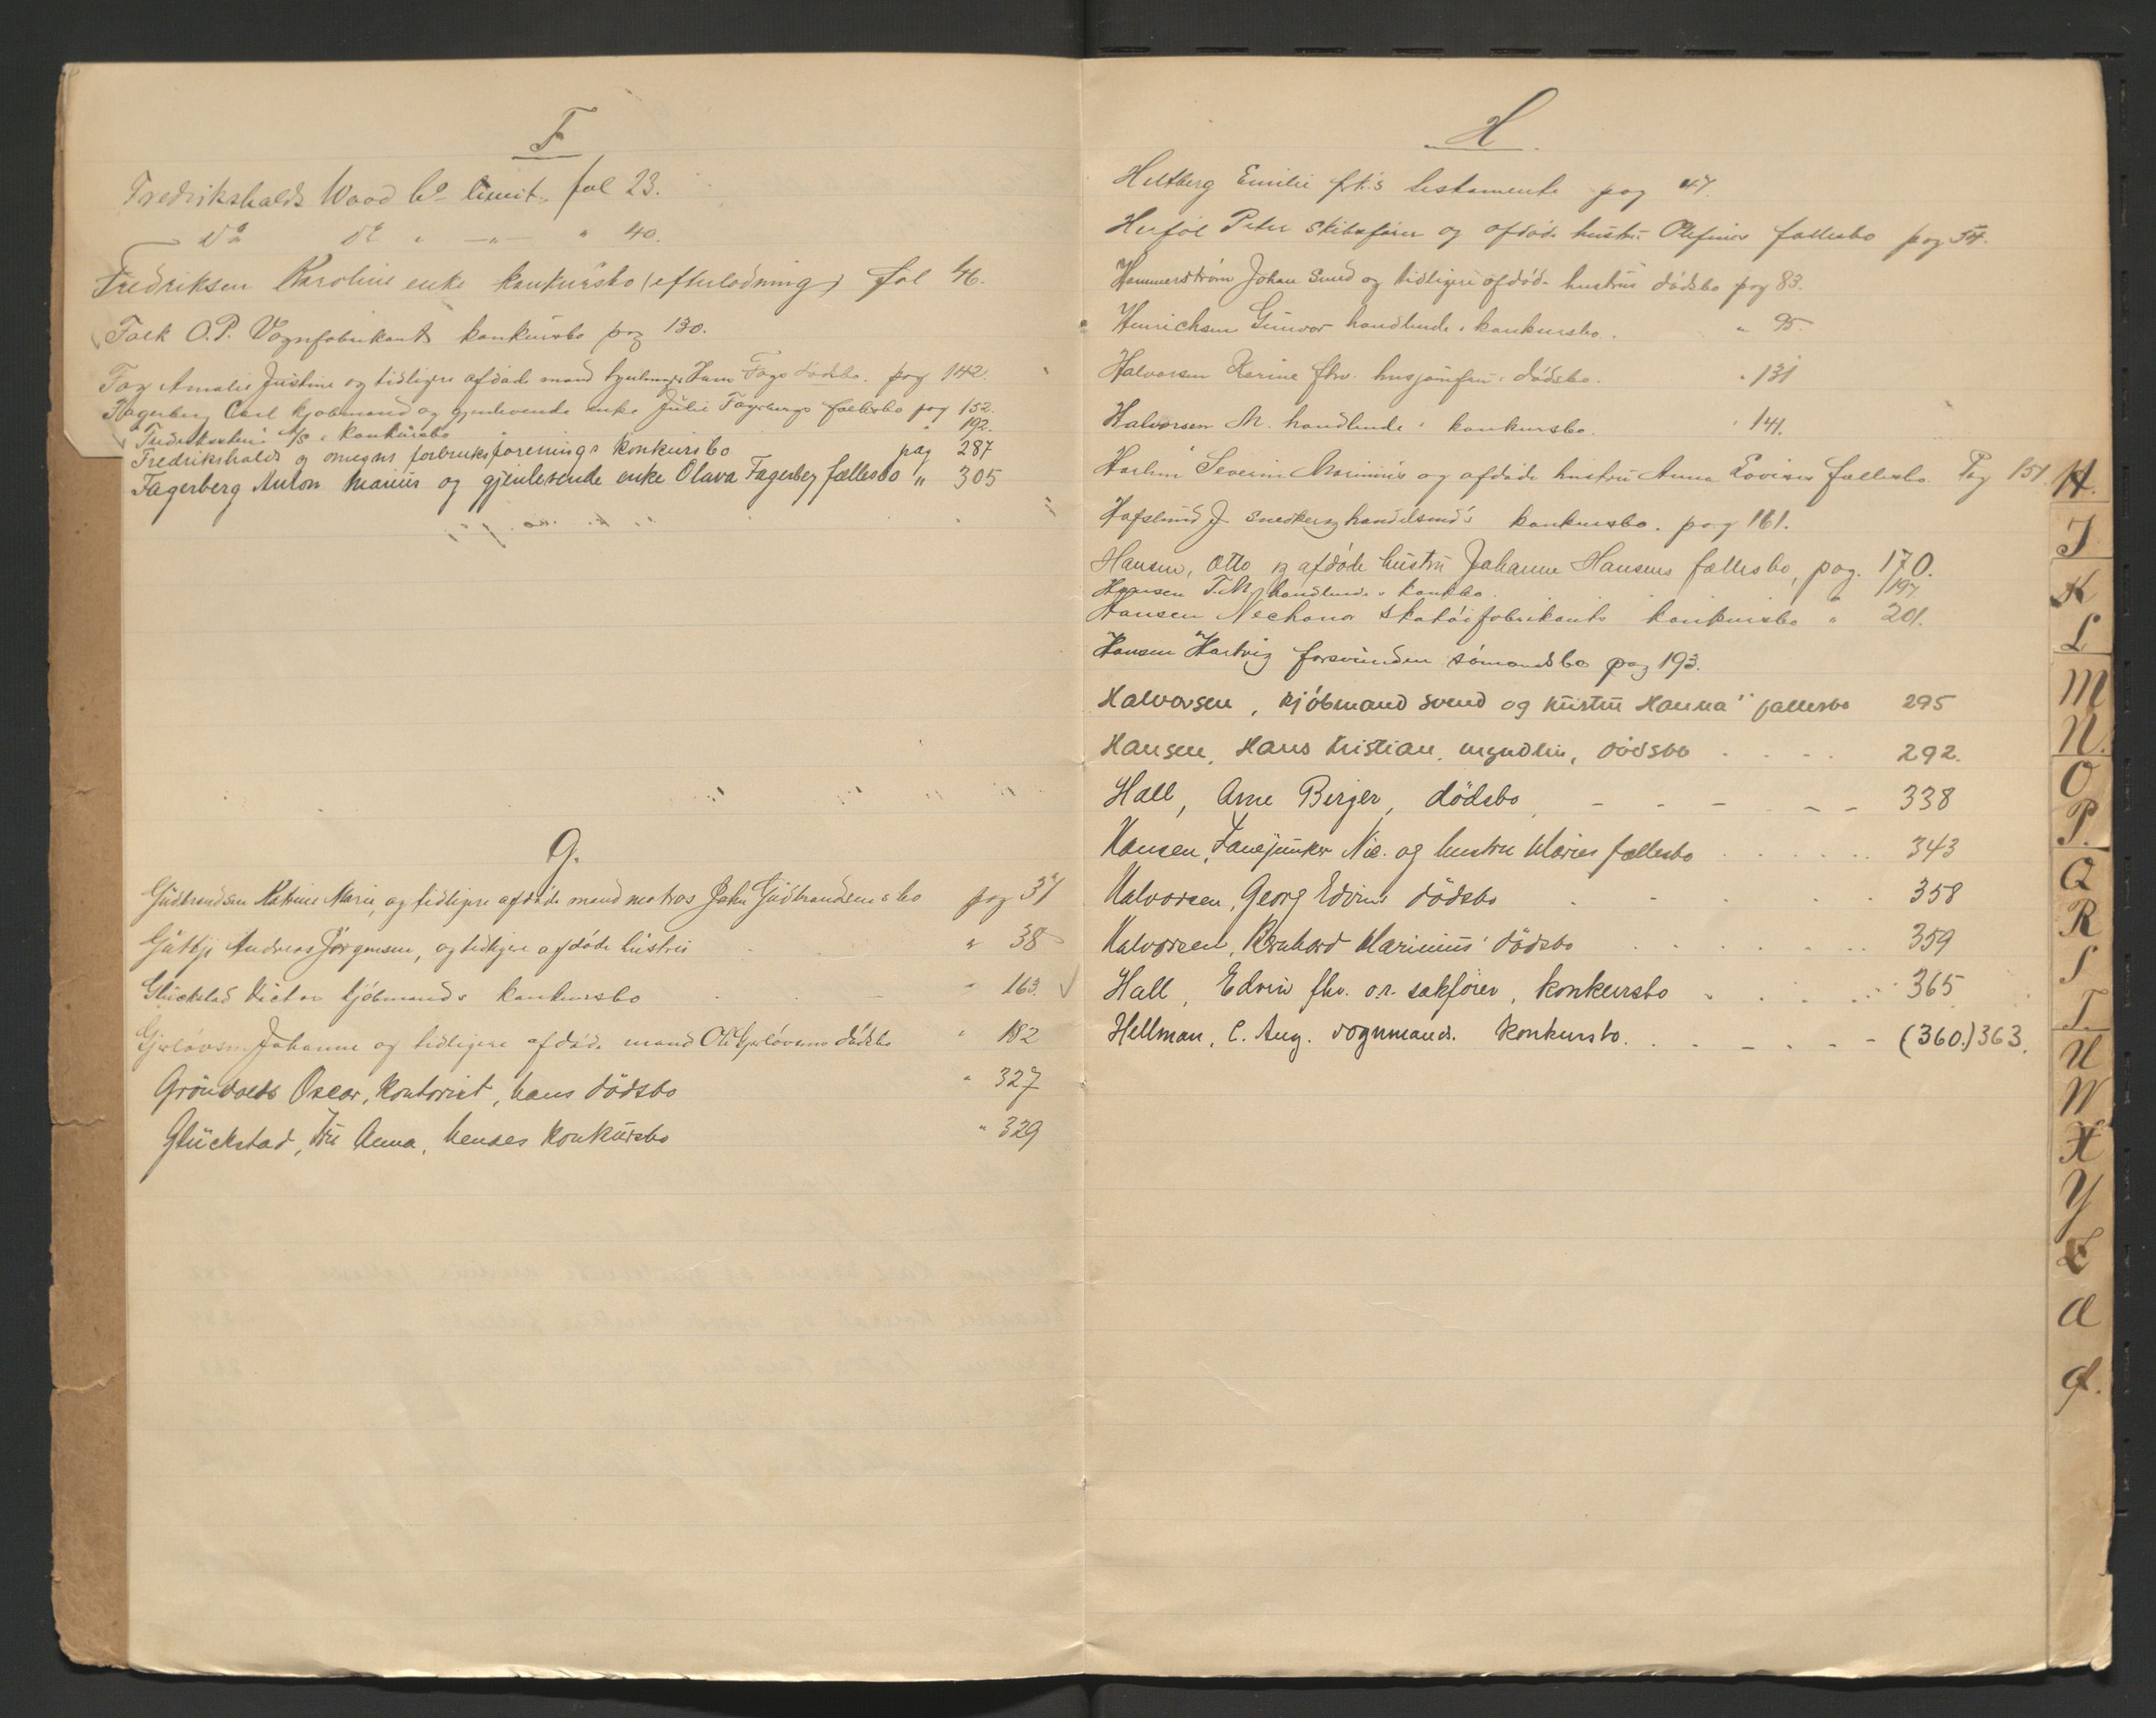 F
Fredrikshalds Wood Co limit. fol 23.
— Do do " —"— " 40.
Fredriksen Karoline enke konkursbo (efterlodning) fol 46.
Falk O.P. Vognfabrikants konkursbo pag 130.
Fag Amalie Justine og tidligere afdøde mand Fags dødsbo. pag 142.
Fagerberg Carl kjøbmand og gjenlevende enke Julie Fagerbergs fællesbo pag 152.
A/S konkursbo " 192.
Fredrikshalds og omegns forbruksforenings konkursbo pag 287
Fagerberg Anton Marius og gjenlevende enke Olava Fagerberg fællesbo " 305
G.
Gudbrandsen Katrine Marie, og tidligere afdøde mand matros John Gudbrandsens bo pag 37
Andreas Jørgensen, og tidligere afdøde hustru " 38
Glückstad Victor kjöbmands konkursbo " 163.
Gjerløvsen Johanne og tidligere afdøde mand Ole Gjerløvsens dødsbo " 182
Gröndvolds Oscar, Kontorist, hans dödsbo " 327
Glückstad, Fru Anna, hendes Konkursbo " 329
H.
Heltberg Emilie frk's testamente pag 47.
Herføl Peter Skibsfører og afdøde hustru Olefines fællesbo pag 54.
Hammerstrøm Johan Smed og tidligere afdøde hustrus dødsbo pag 83.
Henrichsen Gunvor handlende s konkursbo. " 95.
Halvorsen Karine fhv. husjomfru s dødsbo. " 131
Halvorsen M. handlende s konkursbo. " 141.
Severin Marinius og afdøde hustru Anna Lovises fællesbo. Pag 151.
Hafslund J. snedker og handelsmd's konkursbo. pag 161.
Hansen, Otto og afdøde hustru Johanne Hansens fællesbo, pag. 170.
Hansen T.M. handlende s konkbo. 197
Hansen Nechanor skotøifabrikants konkursbo " 201.
Hansen Hartvig forsvunden sømands bo pag 193.
Halvorsen, kjøbmand Svend og hustru Hanna's fællesbo 295
Hansen, Hans Kristian, myndlin, dødsbo 292.
Hall, Arne Birger, dödsbo, 338
Hansen, Fanejunker Nic. og hustru Maries fællesbo 343
Halvorsen, Georg Edvins dödsbo 358
Halvorsen, Bernhard Marinius' dödsbo 359
Hall, Edvin fhv. o.r. sakfører, konkursbo 365
Hellman, C. Aug. vognmands. konkursbo. (360.) 363.
H.
I
K
L
M
N.
O
P.
Q
R
S
T
U
W
X
Y
Z